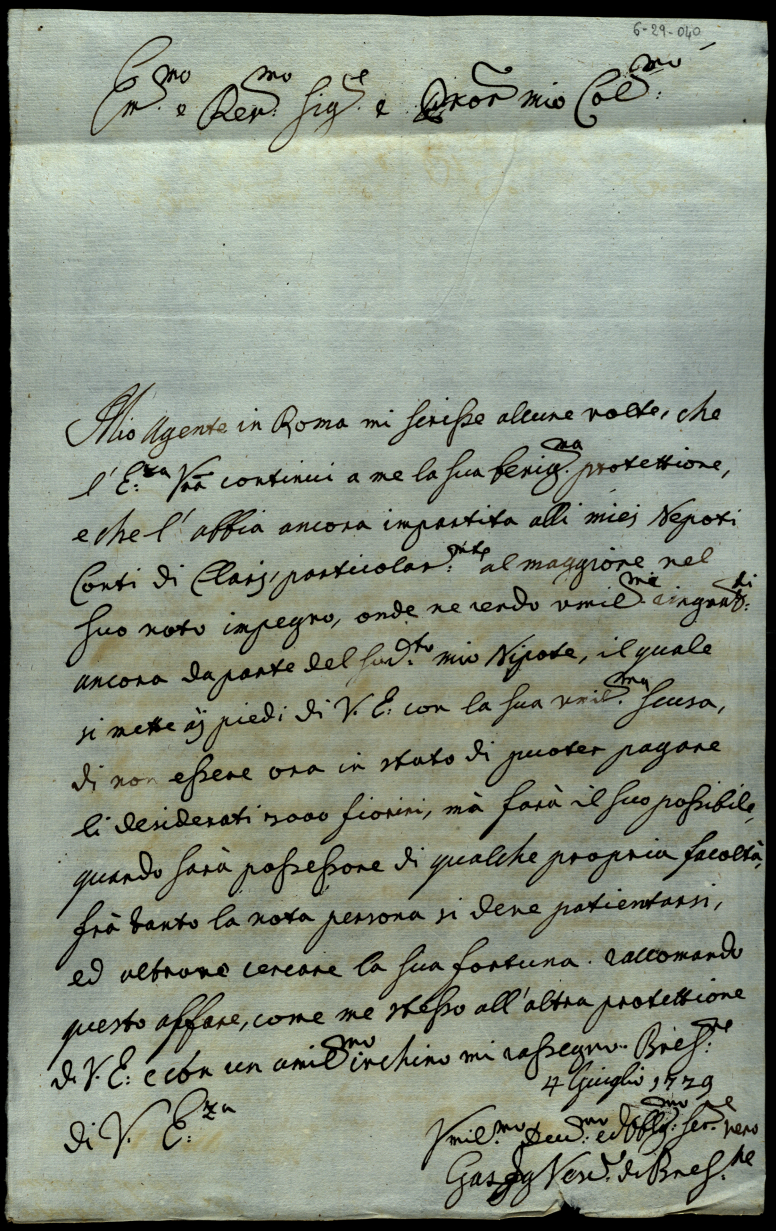 6-29-040
Em.mo e Rev.mo Sig.re e Pron mio Col.mo
Mio Agente in Roma mi scrisse alcune volte, che
l'E.za Vra continui a me la sua benig.ma protettione,
e che l'abbia ancora impartita alli miei Nepoti
Conti di Clarj, particolar.mte al maggiore nel
suo noto impegno, onde ne rendo umil.me
ancora da parte del sud.to mio Nipote, il quale
si mette aj piedi di V. E: con la sua umil.ma scusa,
di non essere ora in stato di puoter pagare
li desiderati fiorini, mà farà il suo possibile,
quando sarà possessore di qualche propria facoltà,
frà tanto la nota persona si deve patientarsi,
ed altrove cercare la sua fortuna. raccomando
questo affare, come me stesso all'altra protettione
di V. E: e con un umil.mo inchino mi rassegno. Bres.ne
4 Giuglio 1729
di V. E.za
Vmil.mo Dev.mo ed Obblig.mo ser.re vero
di Bres.ne